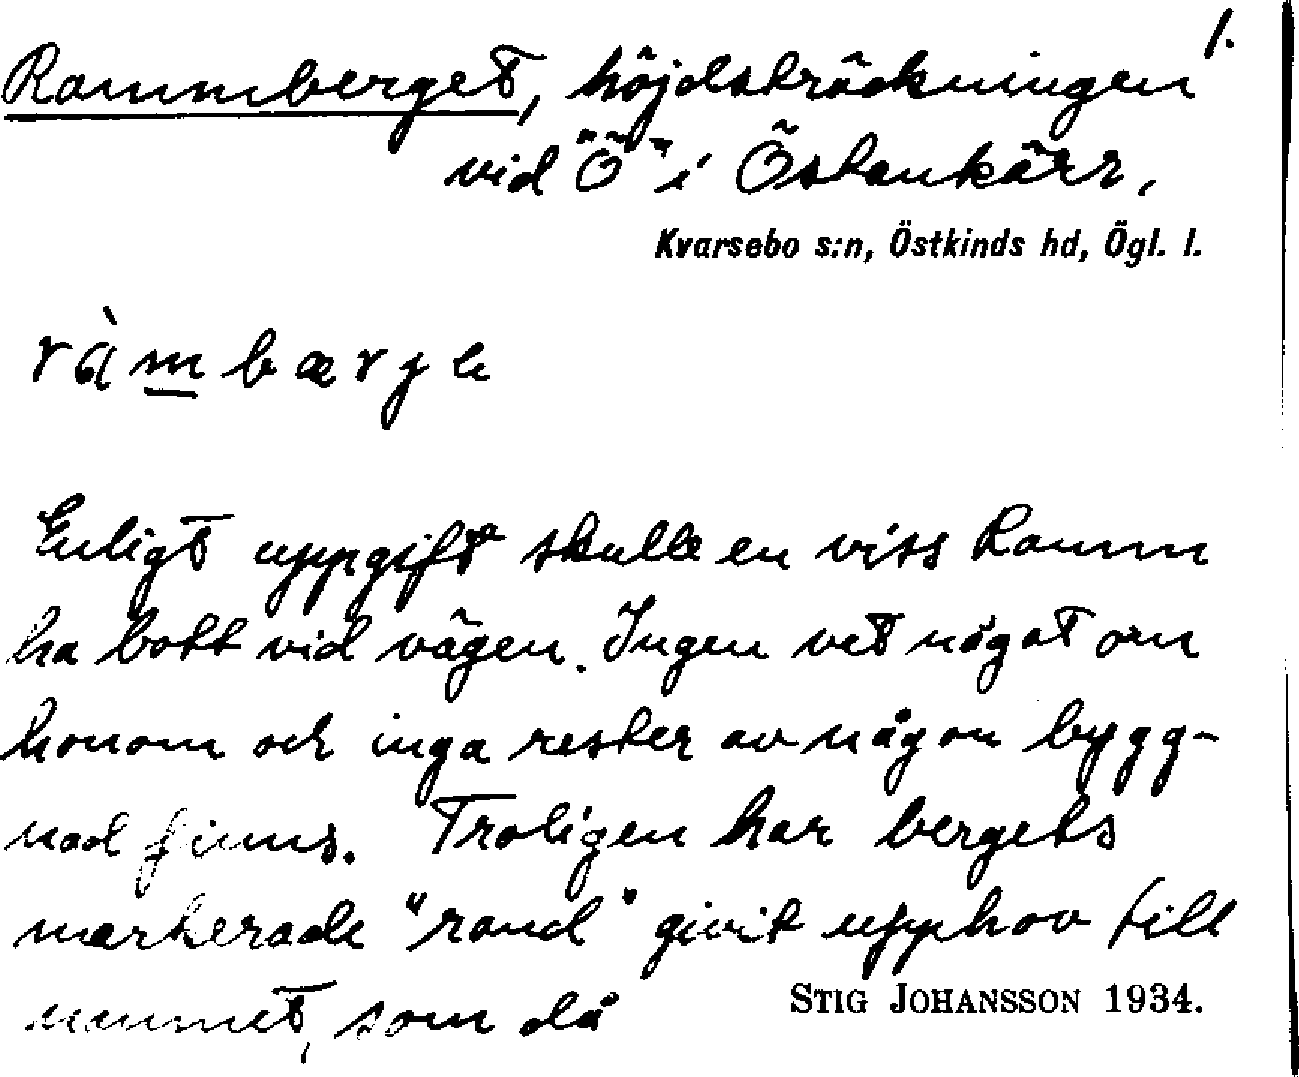 1.
Rammberget, höjdsträckningen
vid "Ö" i Östankärr,
Kvarsebo s:n, Östkinds hd, Ögl. l.
ràmbærje
Enligt uppgift skulle en viss Ramm
ha bott vid vägen. Ingen vet något om
honom och inga rester av någon bygg-
nad finns. Troligen har bergets
markerade "rand" givit upphov till
namnet, som då
STIG JOHANSSON 1934.